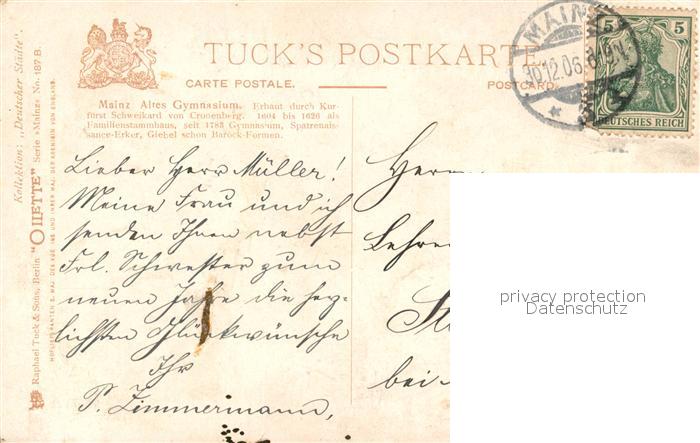 TUCK'S POSTKARTE
CARTE POSTALE.
POSTCARD.
MAINZ
12.06.
5 5
DEUTSCHES REICH
Mainz Altes Gymnasium. Erbaut durch Kur-
fürst Schweikard von Cronenberg. 1604 bis 1626 als
Familienstammhaus, seit 1783 Gymnasium, Spätrenais-
sance-Erker, Giebel schon Barock-Formen.
Lieber Herr Müller!
Meine Frau und ich
senden Ihnen nebst
Frl. Schwester zum
neuen Jahre die herz-
lichsten Glückwünsche
Ihr
P. Zimmermann,
Herrn
Lehre
bei
privacy protection
Datenschutz
Kollektion: „Deutscher Städte".
Raphael Tuck & Sons, Berlin "OILETTE" Serie »Mainz« No. 187 B.